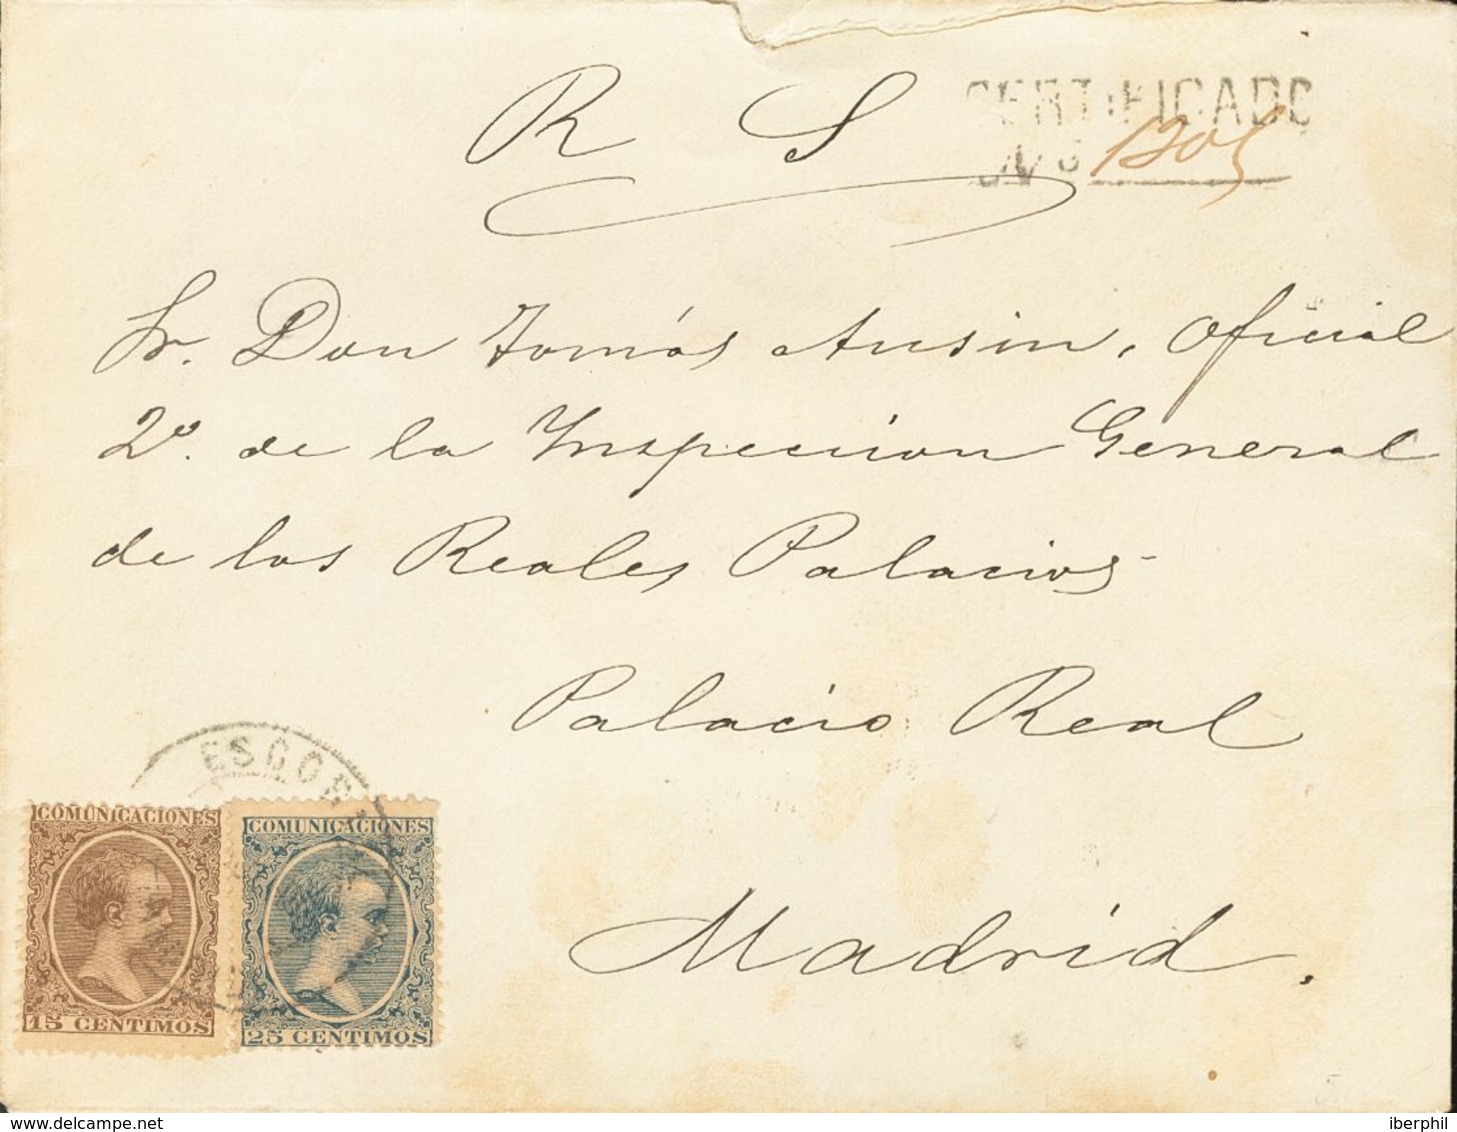 R S
CERTIFICADO
Nº 1305
Sr. Don Tomás Ausin, Oficial
2º de la Inspeccion General
de los Reales Palacios
Palacio Real
Madrid.
ESCOR
COMUNICACIONES
15 CENTIMOS
COMUNICACIONES
25 CENTIMOS
www.delcampe.net
iberphil